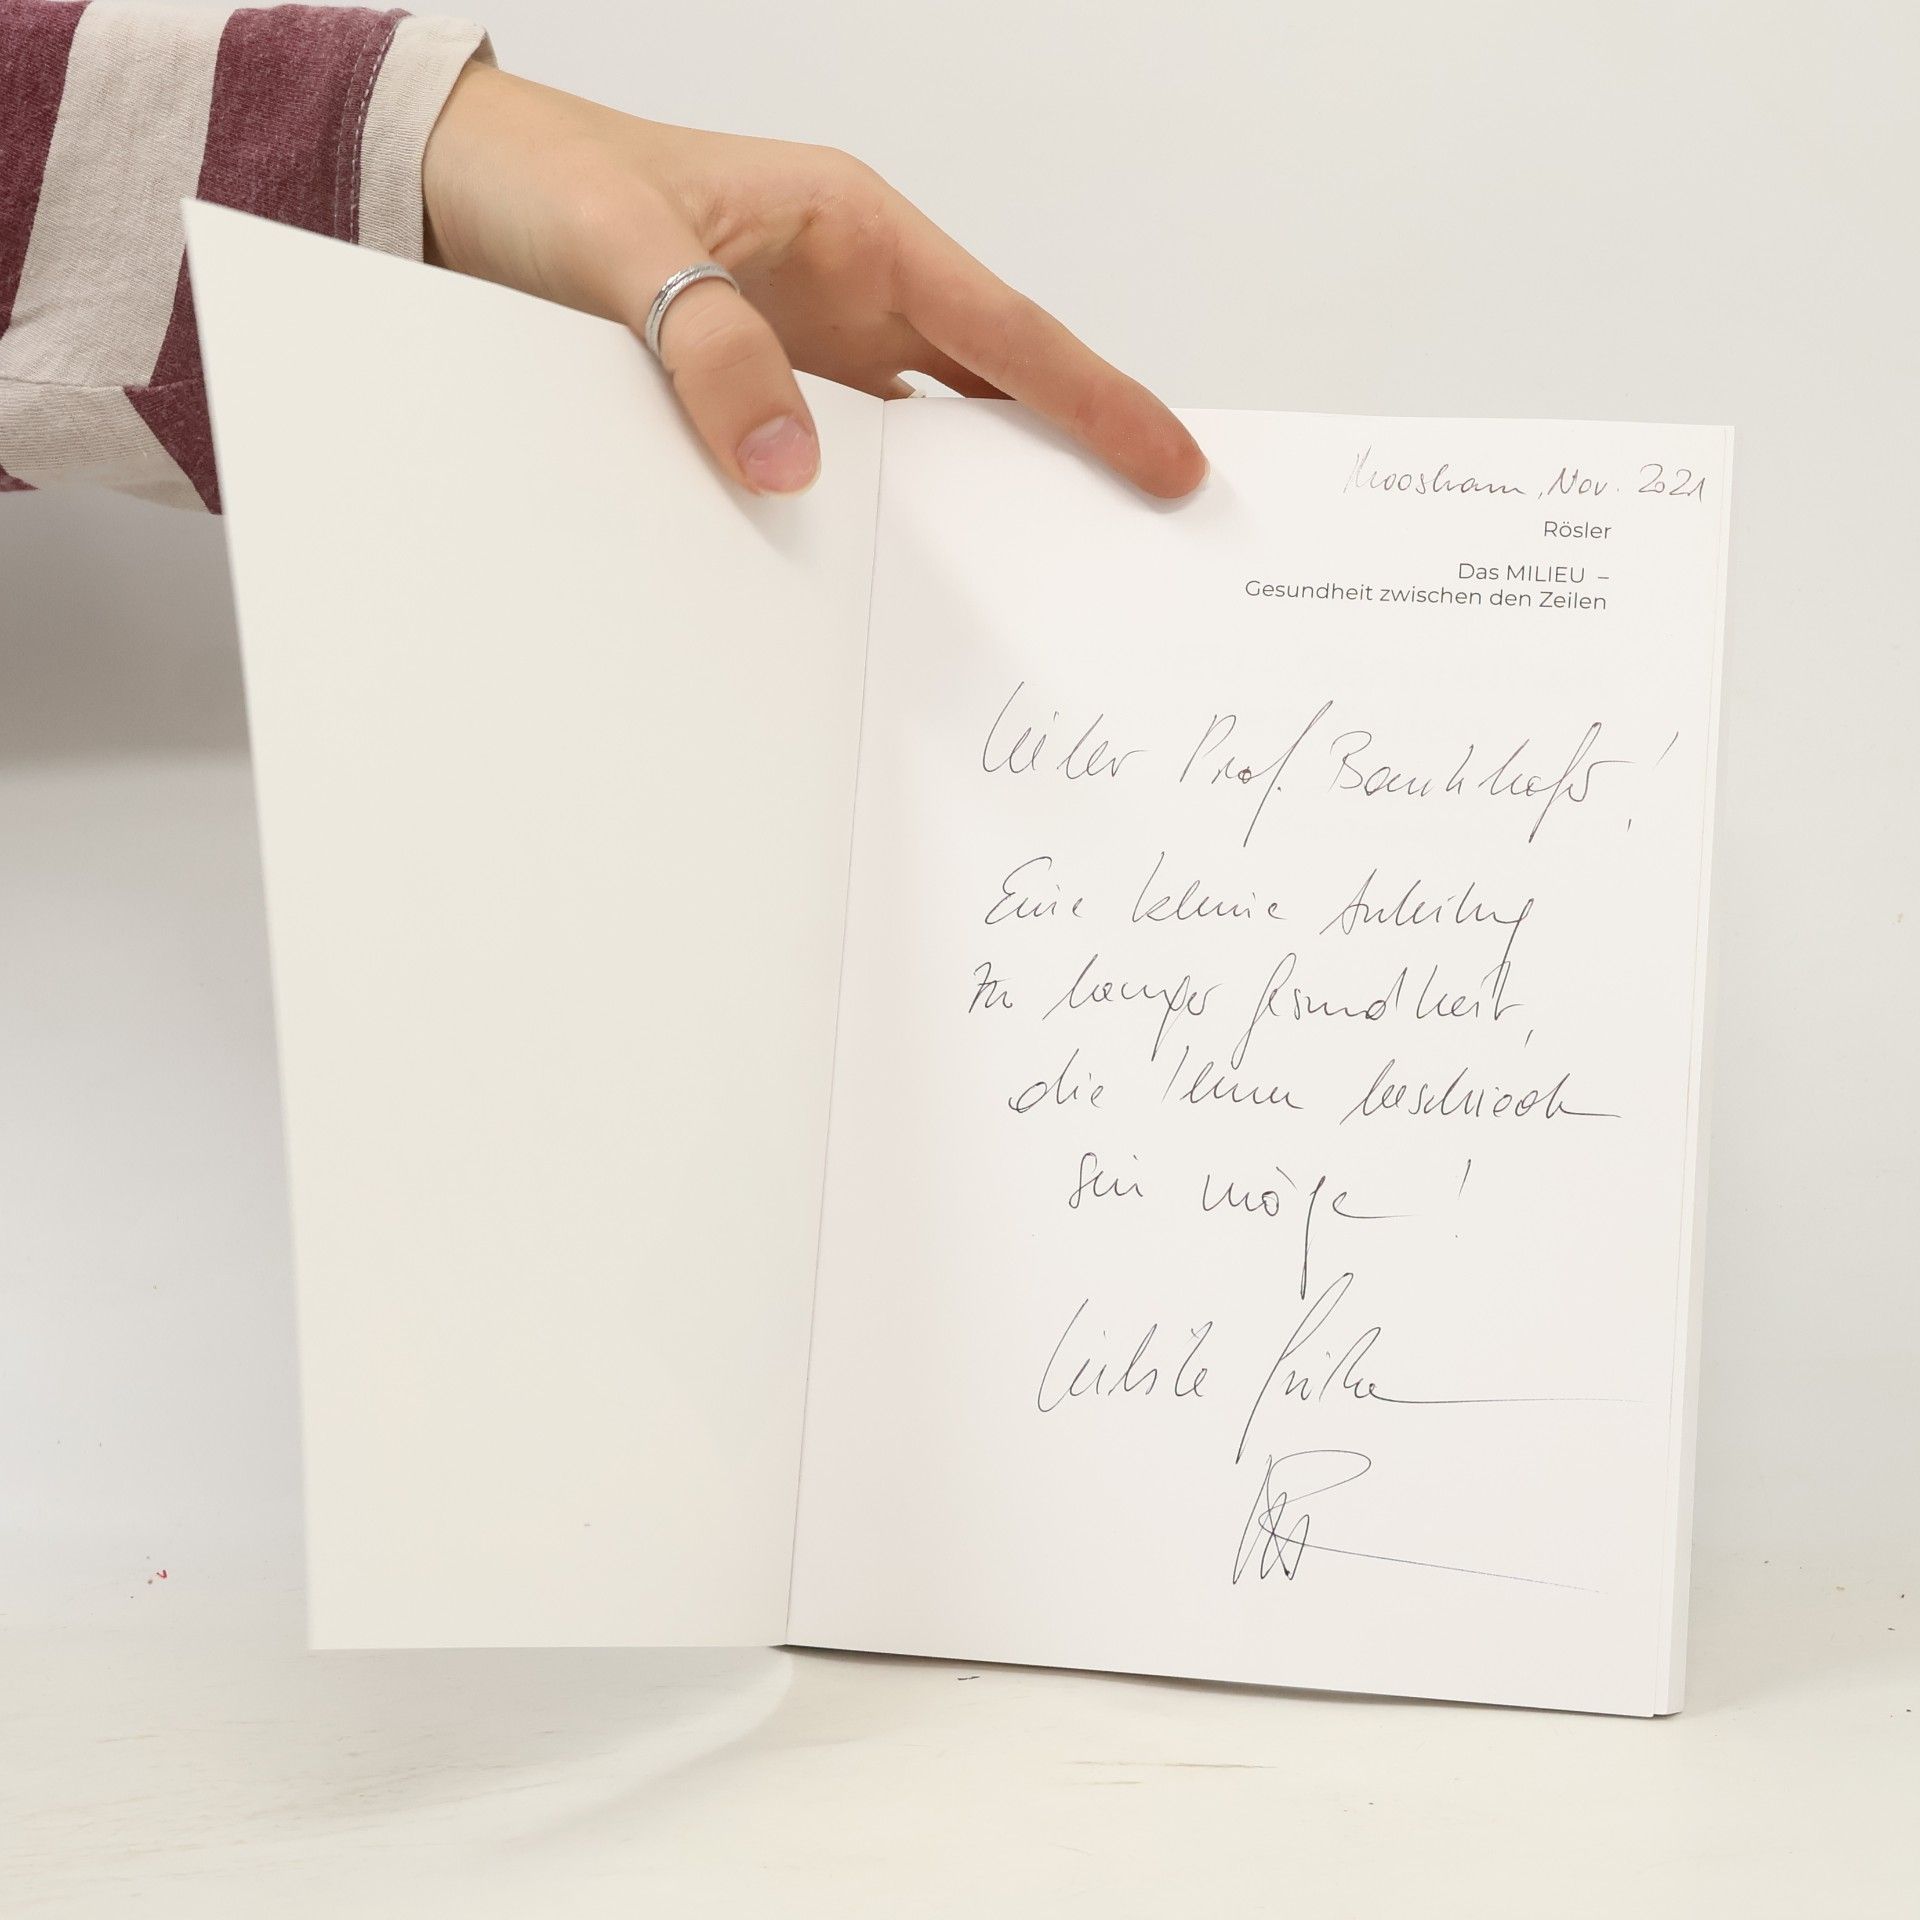 Moosham, Nov. 2021
Rösler
Das MILIEU –
Gesundheit zwischen den Zeilen
Lieber Prof.
Eine kleine Anleitung
zu langer Gesundheit,
die Ihnen beschieden
sein möge!
Liebste Grüße